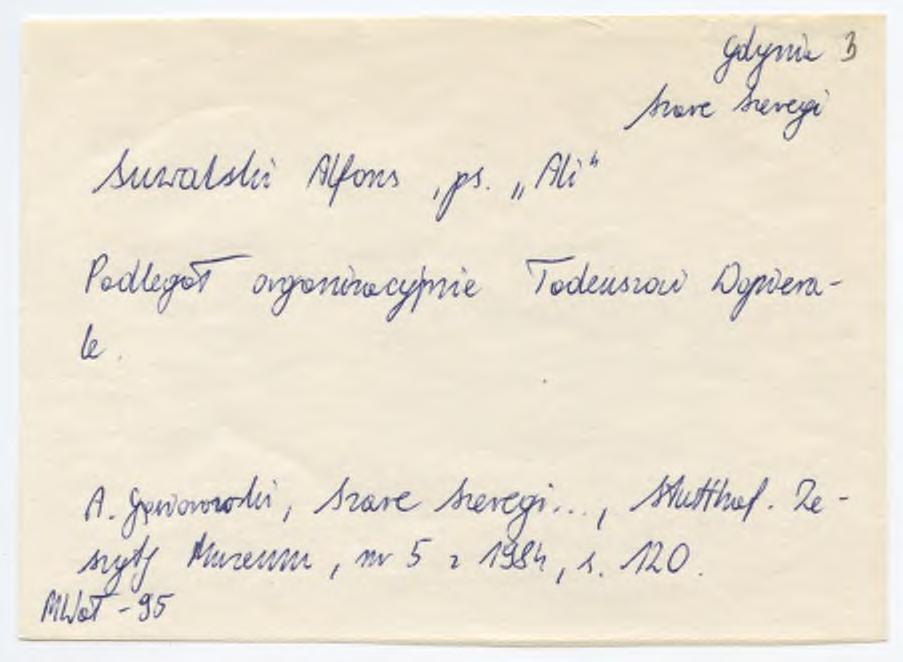 Gdynia B
Szare Szeregi
Suwalski Alfons, ps. „Ali“
Podlegał organizacyjnie Tadeuszowi Dopiera-
le.
A. Gąsiorowski, Szare Szeregi..., Stutthof. Ze-
szyty Muzeum, nr 5 z 1984, s. 120.
MWoł - 95